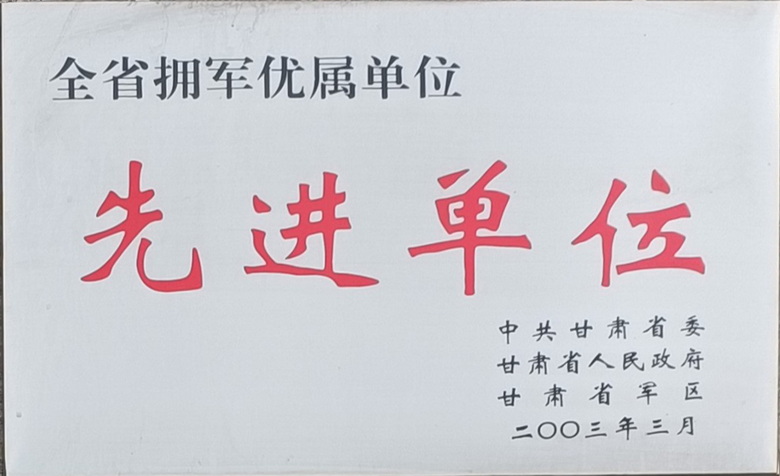 全省拥军优属单位
先进单位
中共甘肃省委
甘肃省人民政府
甘肃省军区
二〇〇三年三月